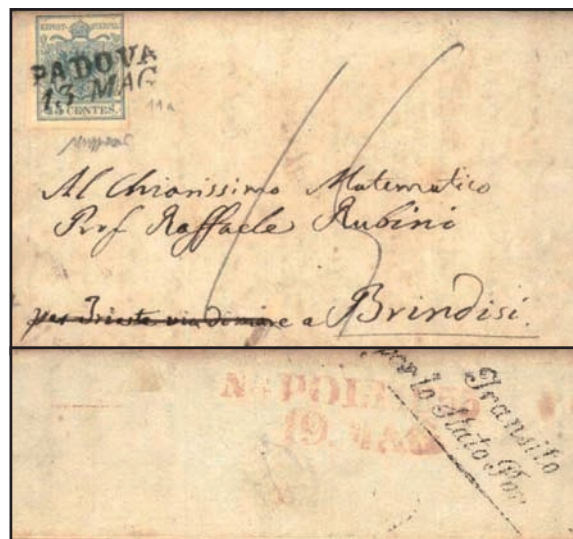 PADOVA
13 MAG
45 CENTES.
11a
Al Chiarissimo Matematico
Prof Raffaele Rubini
per Trieste via di mare a Brindisi.
NAPOLI
19. MAG
Transito
per lo Stato Pon